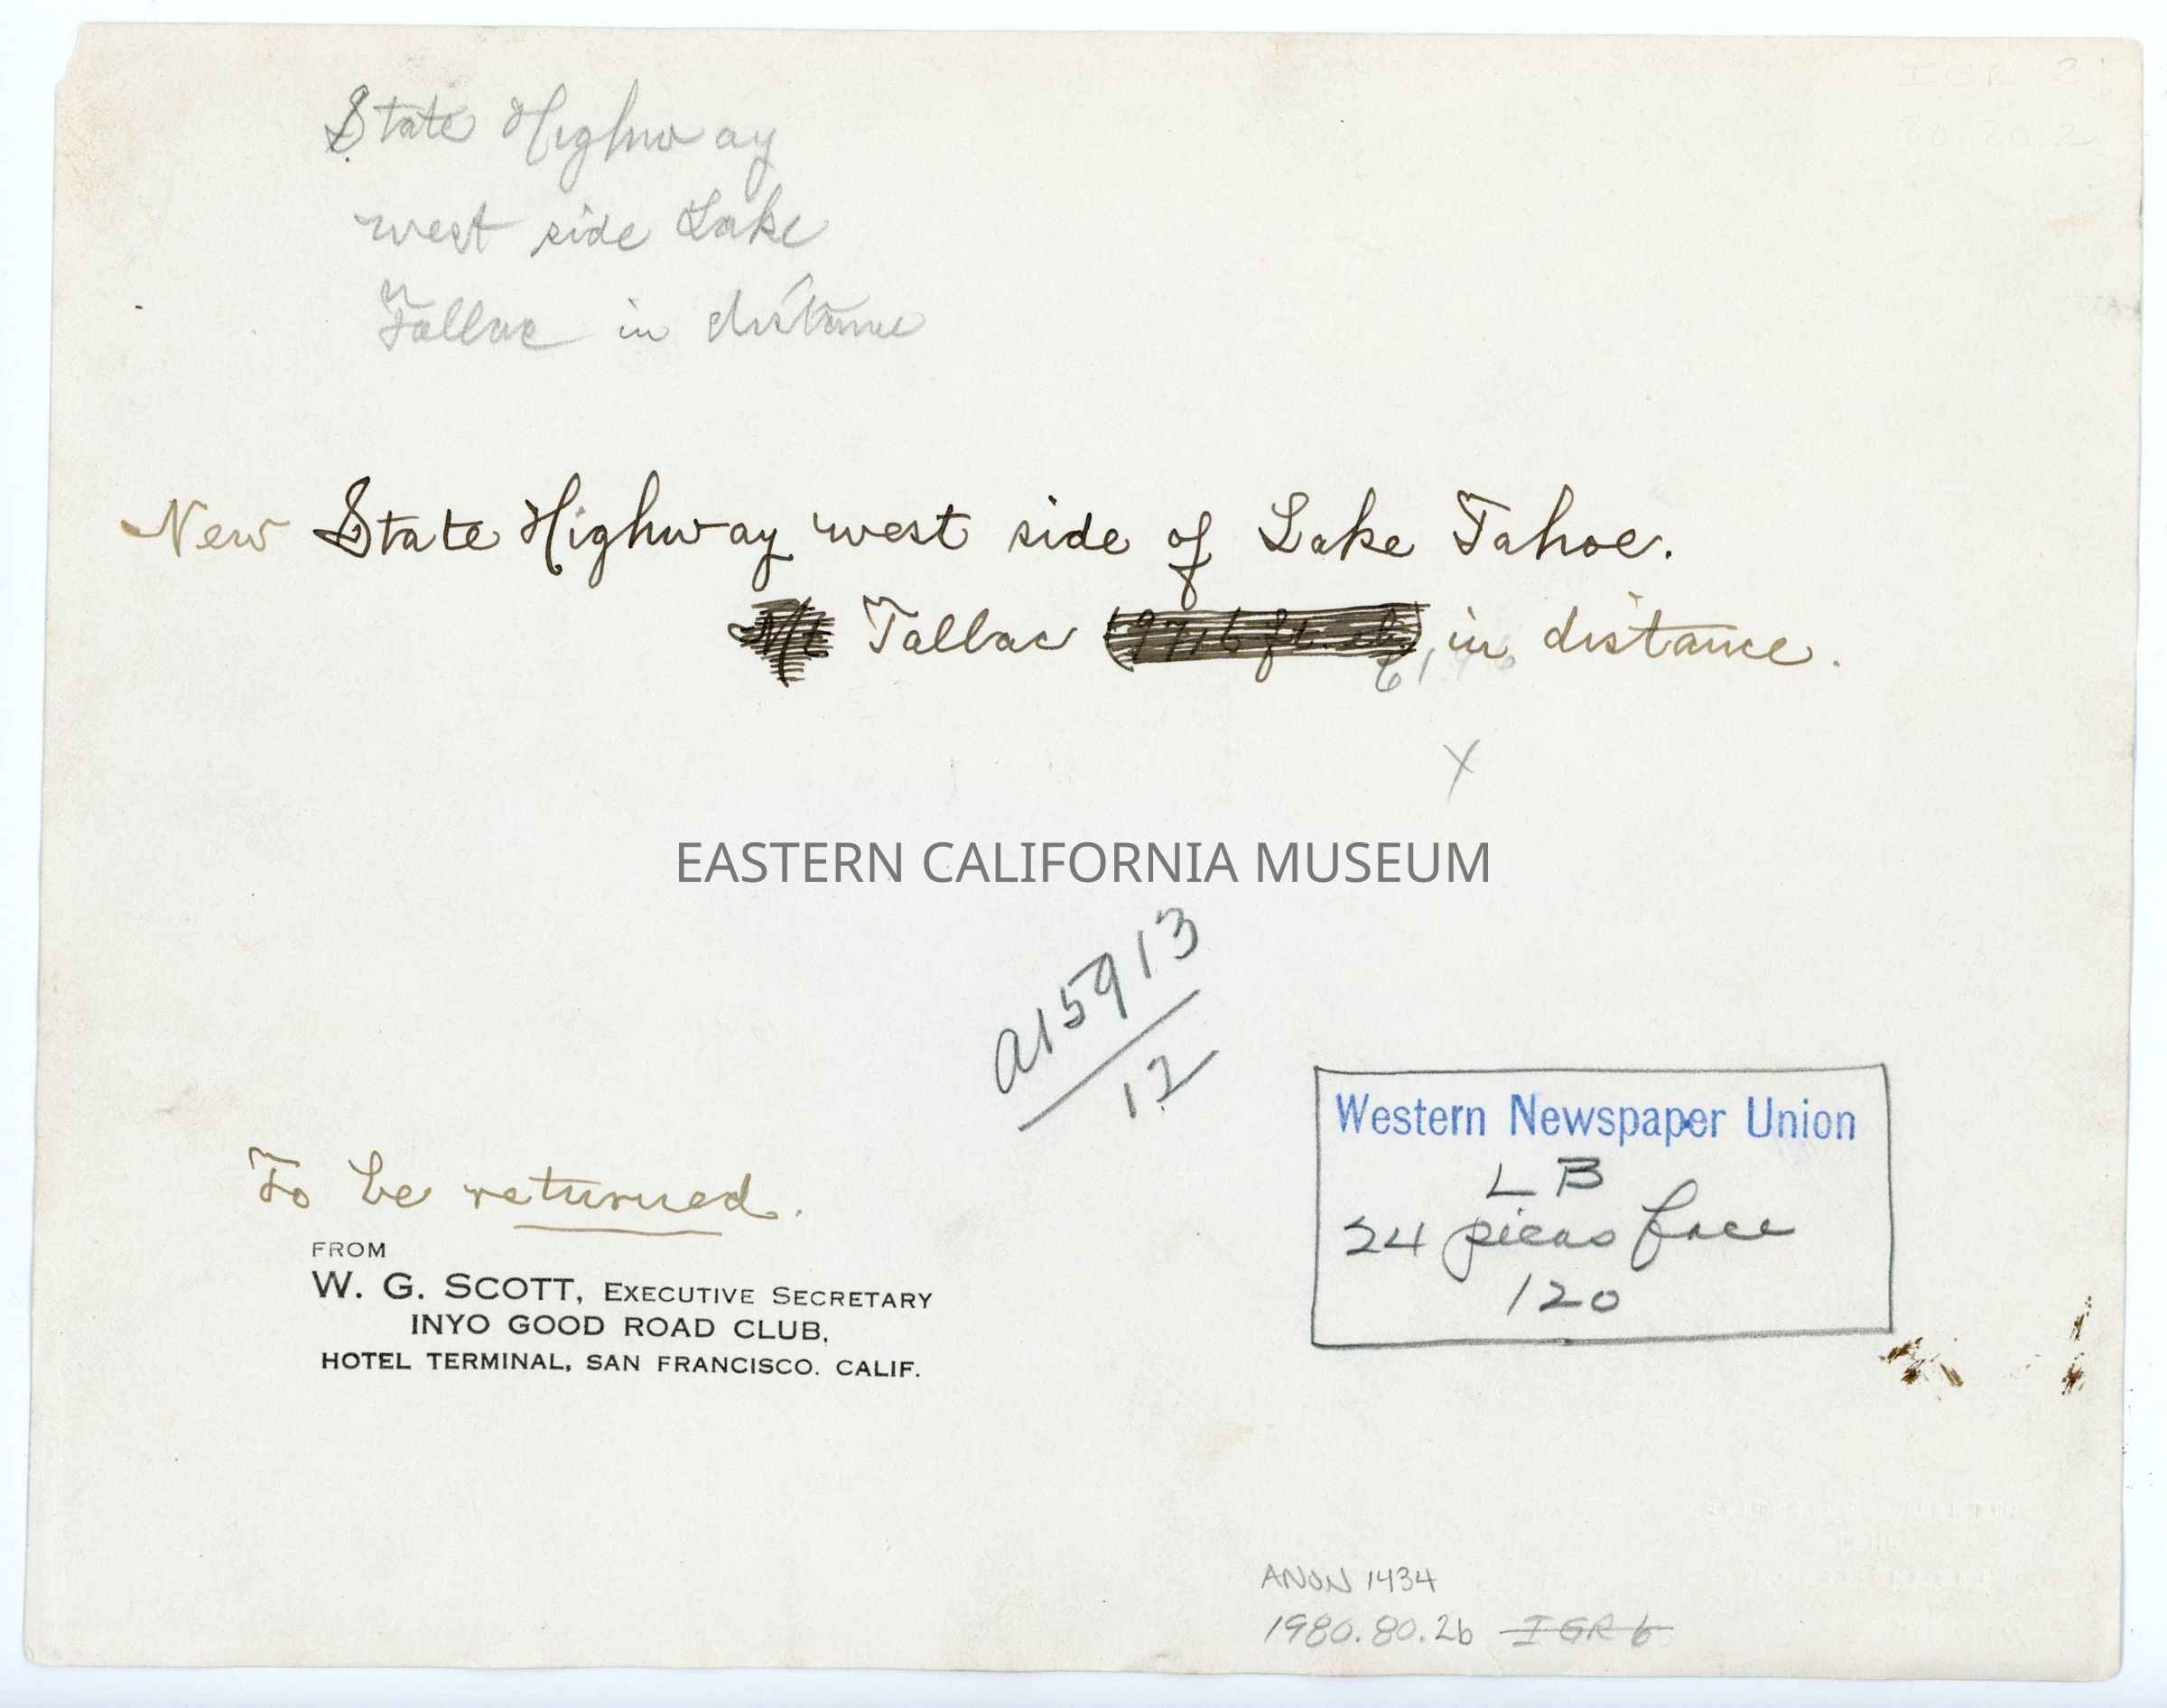 State Highway
west side Lake
Tallac in distance
New State Highway west side of Lake Tahoe.
Mt Tallac (9716 ft. el) in distance.
X
EASTERN CALIFORNIA MUSEUM
a15913
12
Western Newspaper Union
LB
24 picas face
120
To be returned.
FROM
W. G. SCOTT, EXECUTIVE SECRETARY
INYO GOOD ROAD CLUB,
HOTEL TERMINAL, SAN FRANCISCO. CALIF.
ANON 1434
1980.80.2b IGR 6